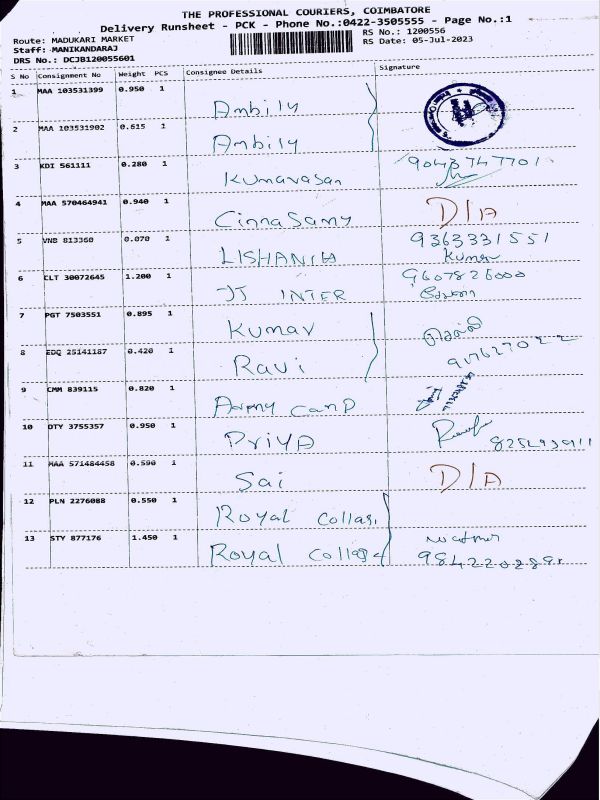 THE PROFESSIONAL COURIERS, COIMBATORE
Delivery Runsheet - PCK - Phone No.:0422-3505555 - Page No.:1
Route: MADUKARI MARKET
RS No.: 1200556
Staff: MANIKANDARAJ
RS Date: 05-Jul-2023
DRS No.: DCJB120055601
S No Consignment No Weight PCS Consignee Details Signature
1 MAA 103531399 0.950 1 Ambily
2 MAA 103531902 0.615 1 Ambily
3 KDI 561111 0.280 1 Kumarasan 9043747701
4 MAA 570464941 0.940 1 Cinnasamy D/A
5 VNB 813360 0.070 1 LISHANIH 9363331551
Kumar
6 CLT 30072645 1.200 1 JJ INTER 9607826000
7 PGT 7503551 0.895 1 Kumar
8 EDQ 25141187 0.420 1 Ravi
9 CMM 839115 0.820 1 Army camp
10 OTY 3755357 0.950 1 Priya
11 MAA 571484458 0.590 1 Sai D/A
12 PLN 2276088 0.550 1 Royal Collag.
13 STY 877176 1.450 1 Royal Collage